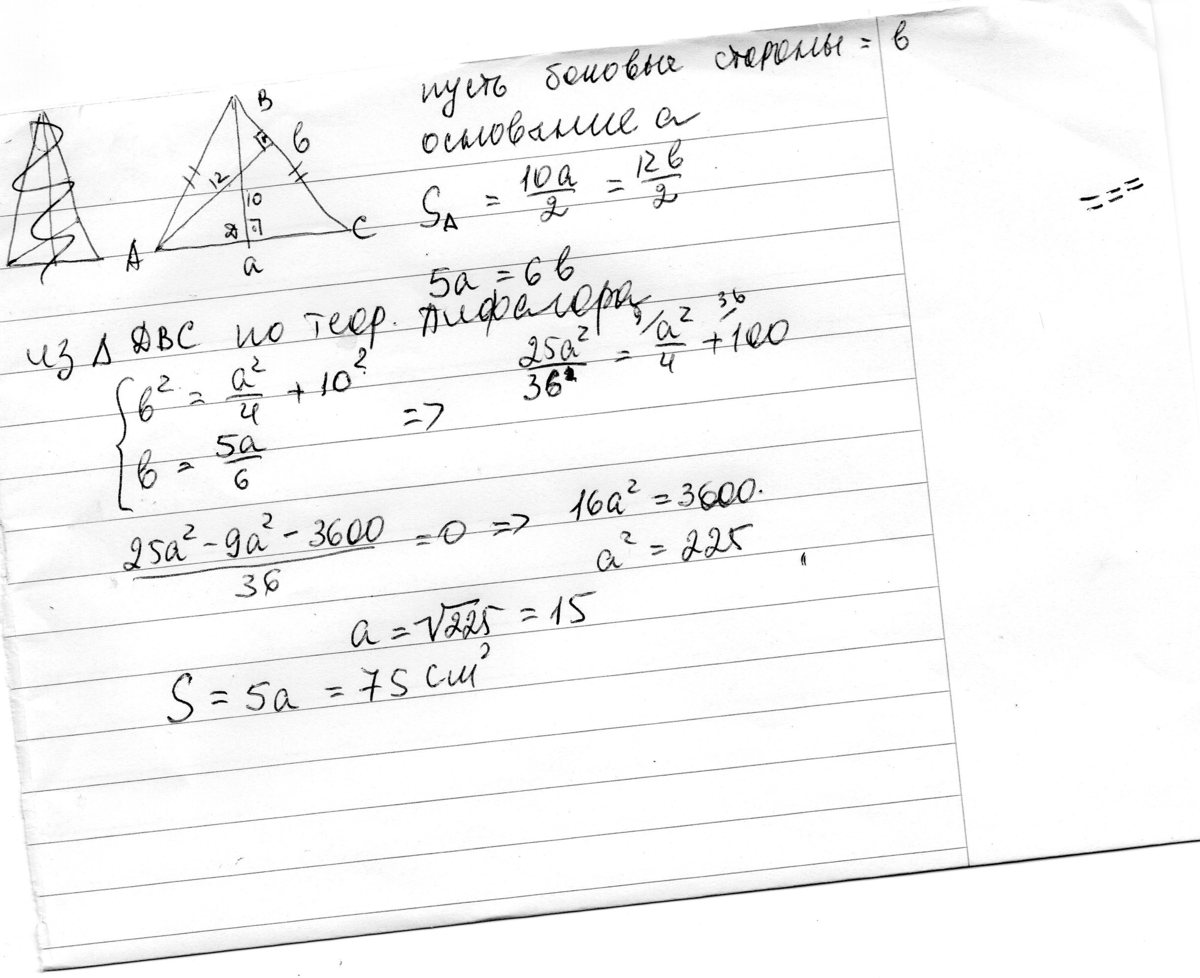 пусть боковые стороны = в
основание а
B
в
12
10
A
D
C
a
S_Δ = 10a/2 = 12в/2
5a = 6в
из Δ DBC по теор. Пифагора
{ в² = a²/4 + 10²
в = 5a/6
=> 25a²/36 = 9/ a²/4 + 36/ 100
(25a² - 9a² - 3600)/36 = 0 => 16a² = 3600.
a² = 225
a = √225 = 15
S = 5a = 75 см²